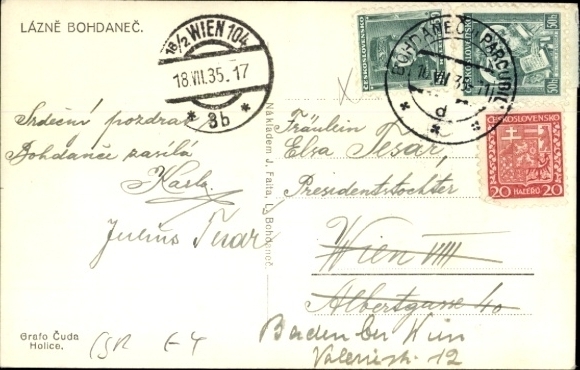 LÁZNĚ BOHDANEČ.
18/2 WIEN 104
18.VII.35.17
* 3b *
ČESKOSLOVENSKO
ČESKOSLOVENSKO
50h
50h
BOHDANEČ
35
d
ČESKOSLOVENSKO
20 HALÉŘŮ 20
Srdečný pozdrav
Bohdanče zasílá
Karla
Julius
Nákladem J. Faita, L. Bohdaneč.
Fräulein
Elsa Tesař,
Presidentstochter
Wien VIII
Albertgasse 40
Baden bei Wien
12
Grafo Čuda
Holice.
ČSR E-4